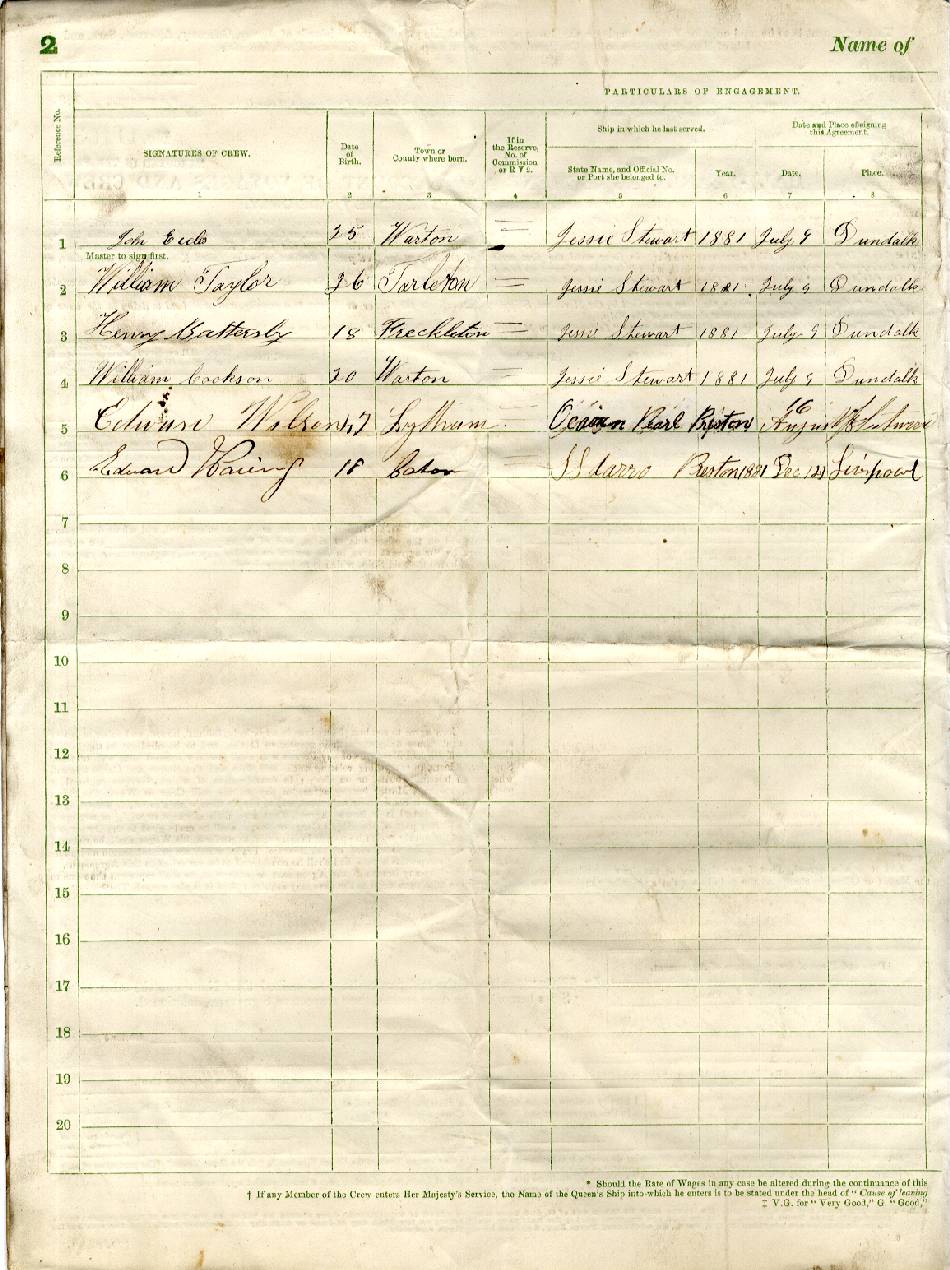 2 Name of
PARTICULARS OF ENGAGEMENT.
Reference No.
SIGNATURES OF CREW.
Date of Birth.
Town or County where born.
If in the Reserve, No. of Commission or R V 2.
Ship in which he last served.
State Name, and Official No. or Port she belonged to.
Year.
Date and Place of signing this Agreement.
Date.
Place.
1 2 3 4 5 6 7 8
1 Joh 35 Warton Jessie Stewart 1881 July 9 Dundalk
Master to sign first.
2 William Taylor 36 Tarleton Jessie Stewart 1881 July 9 Dundalk
3 Henry Battersby 18 Freckleton Jessie Stewart 1881 July 9 Dundalk
4 William Cookson 20 Warton Jessie Stewart 1881 July 9 Dundalk
5 Wilson 17 Lytham Pearl Preston 16
6 Edward 18 Preston 1881 Dec Liverpool
7
8
9
10
11
12
13
14
15
16
17
18
19
20
* Should the Rate of Wages in any case be altered during the continuance of this
† If any Member of the Crew enters Her Majesty's Service, the Name of the Queen's Ship into which he enters is to be stated under the head of "Cause of leaving
‡ V.G. for "Very Good," G "Good,"